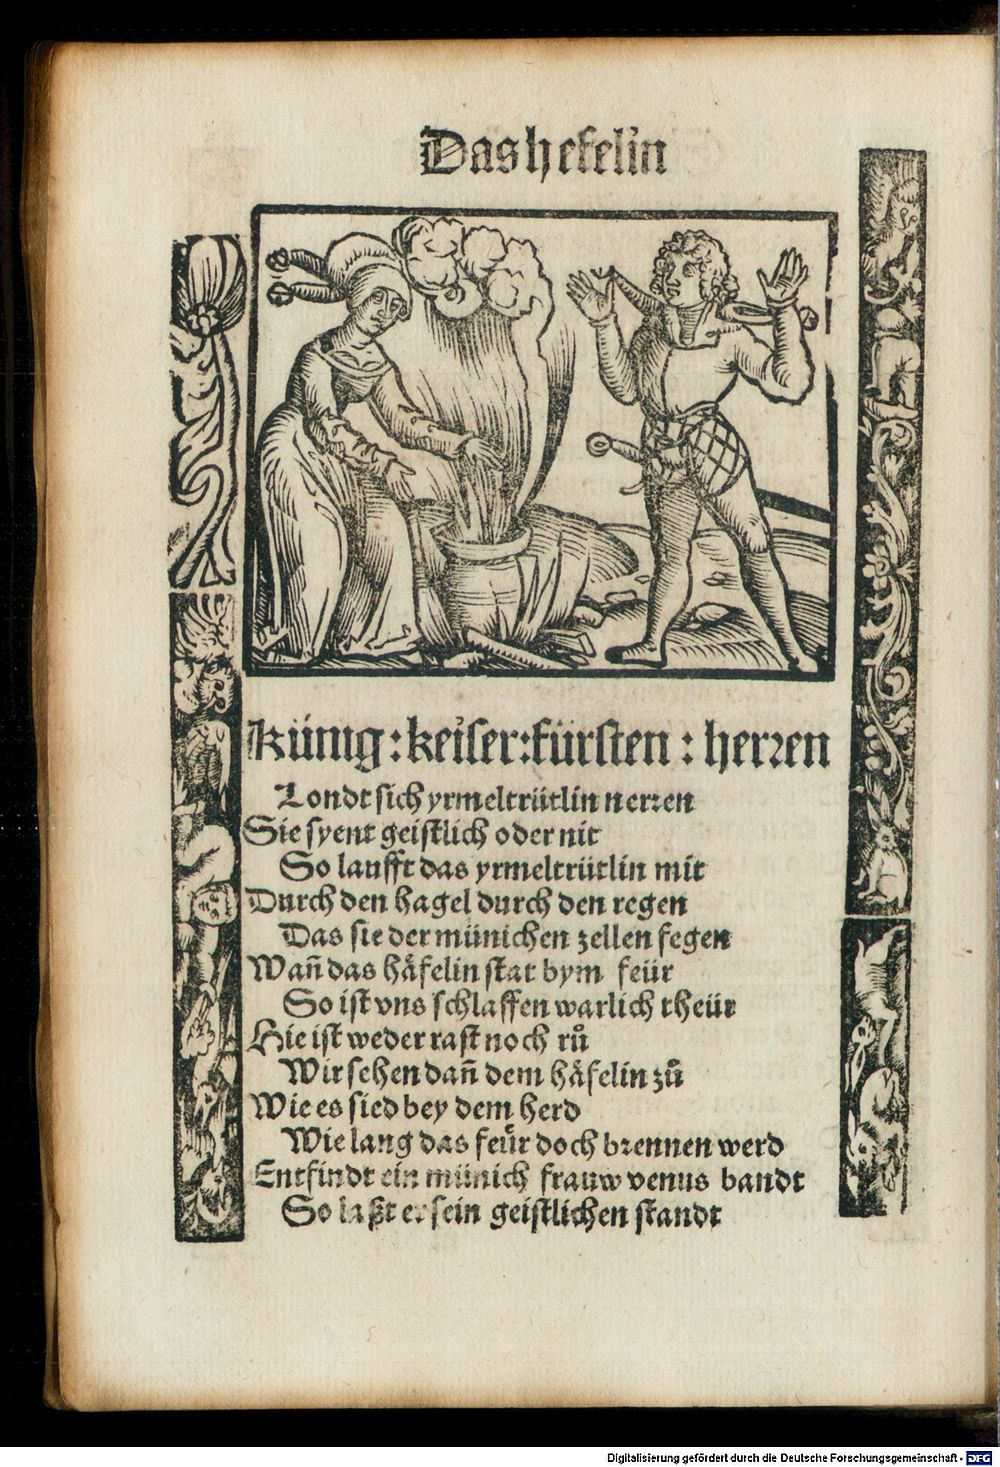 Das hefelin
Künig : keiser : fürsten : herren
Londt sich yrmeltrütlin nerren
Sie syent geistlich oder nit
So laufft das yrmeltrütlin mit
Durch den hagel durch den regen
Das sie der münichen zellen fegen
Wañ das häfelin stat bym feür
So ist vns schlaffen warlich theür
Hie ist weder rast noch rů
Wir sehen dañ dem häfelin zů
Wie es sied bey dem herd
Wie lang das feür doch brennen werd
Entfindt ein münich frauw venus bandt
So laßt er sein geistlichen standt
Digitalisierung gefördert durch die Deutsche Forschungsgemeinschaft - DFG